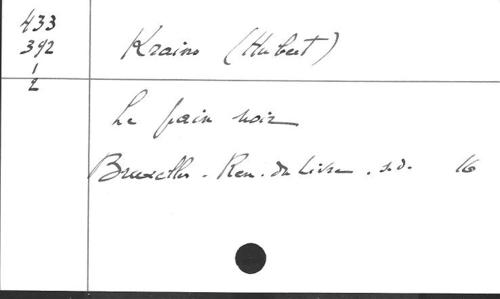 433
392
1
2
Krains (Hubert)
Le pain noir
Bruxelles. Ren. du Livre. s.d. 16